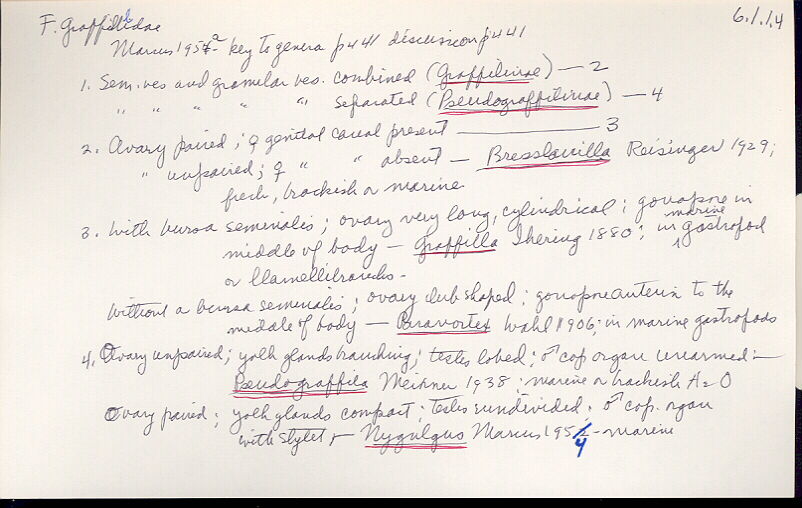 6.1.1.4
F. Graffillidae
Marcus 1954a key to genera p441 discussion p441
1. Sem. ves and granular ves. combined (Graffillinae) — 2
" " " " " separated (Pseudograffillinae) — 4
2. Ovary paired; ♀ genital canal present — 3
" unpaired; ♀ " " absent — Bresslauilla Reisinger 1929;
fresh, brackish or marine
3. With bursa seminalis; ovary very long, cylindrical; gonopore in
middle of body — Graffilla Ihering 1880; in marine gastropod
or llamellibranchs.
Without a bursa seminalis; ovary club shaped; gonopore anterior to the
middle of body — Paravortex Wahl 1906; in marine gastropods
4. Ovary unpaired; yolk glands branching; testes lobed; ♂ cop organ unarmed —
Pseudograffilla Meixner 1938; marine or brackish A=0
Ovary paired; yolk glands compact; testes undivided; ♂ cop. organ
with stylet — Nygulgus Marcus 1954 - marine